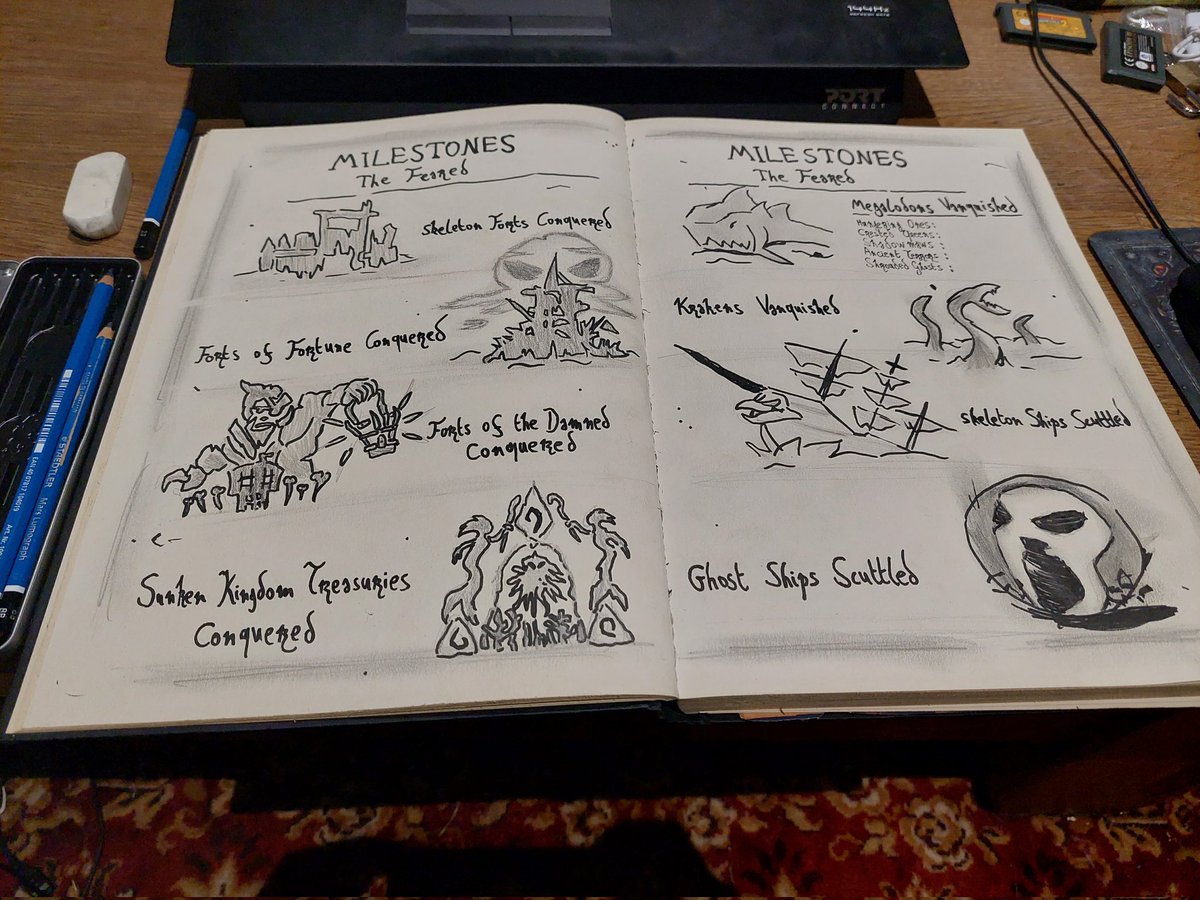 144Hz
PORT
CONNECT
MILESTONES
The Feared
Skeleton Forts Conquered
Forts of Fortune Conquered
Forts of the Damned
Conquered
Sunken Kingdom Treasuries
Conquered
MILESTONES
The Feared
Megalodons Vanquished
Hungering Ones:
Crested Queens:
Shadowmaws:
Ancient Terrors:
Shrouded Ghosts:
Krakens Vanquished
Skeleton Ships Scuttled
Ghost Ships Scuttled
STAEDTLER
Mars Lumograph